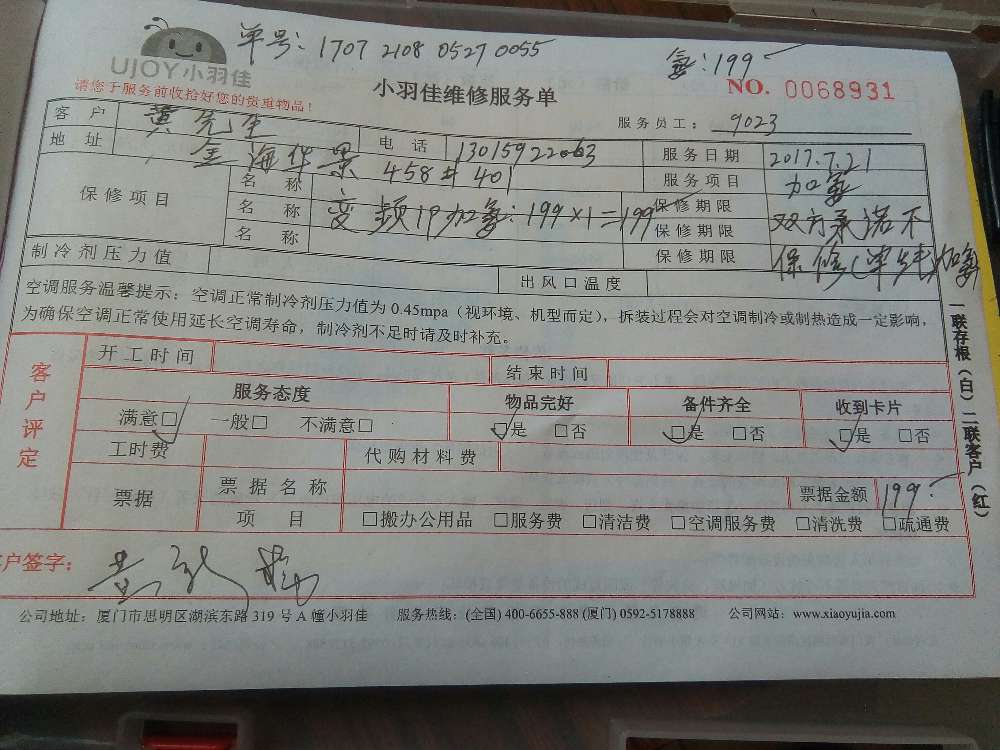 单号: 1707 2108 0527 0055
氟:199-
UJOY小羽佳
请您于服务前收拾好您的贵重物品!
小羽佳维修服务单
NO. 0068931
服务员工: 9023
客 户 黄先生
地 址 金海华景 458# 401
电 话 13015922063
服务日期 2017.7.21
服务项目 加氟
保修项目
名 称 变频1P加氟:199×1=199
名 称
名 称
保修期限 双方承诺不
保修期限 保修(单纯加氟
保修期限
制冷剂压力值
出风口温度
空调服务温馨提示:空调正常制冷剂压力值为 0.45mpa(视环境、机型而定),拆装过程会对空调制冷或制热造成一定影响,
为确保空调正常使用延长空调寿命,制冷剂不足时请及时补充。
一联存根(白)二联客户(红)
客户评定
开工时间
结束时间
服务态度 物品完好 备件齐全 收到卡片
满意□ 一般□ 不满意□ □是 □否 □是 □否 □是 □否
工时费 代购材料费
票据 票据名称 票据金额 199-
项 目 □搬办公用品 □服务费 □清洁费 □空调服务费 □清洗费 □疏通费
客户签字:
公司地址:厦门市思明区湖滨东路 319 号 A 幢小羽佳 服务热线:(全国) 400-6655-888 (厦门) 0592-5178888 公司网站:www.xiaoyujia.com